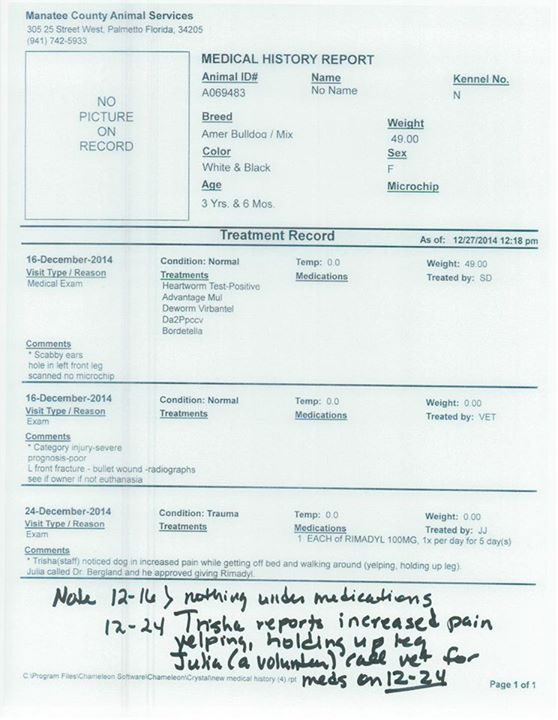 Manatee County Animal Services
305 25 Street West, Palmetto Florida, 34205
(941) 742-5933
NO
PICTURE
ON
RECORD
MEDICAL HISTORY REPORT
Animal ID# Name Kennel No.
A069483 No Name N
Breed
Amer Bulldog / Mix
Weight
49.00
Color
White & Black
Sex
F
Age
3 Yrs. & 6 Mos.
Microchip
Treatment Record As of: 12/27/2014 12:18 pm
16-December-2014 Condition: Normal Temp: 0.0 Weight: 49.00
Visit Type / Reason Treatments Medications Treated by: SD
Medical Exam Heartworm Test-Positive
Advantage Mul
Deworm Virbantel
Da2Ppccv
Bordetella
Comments
* Scabby ears
hole in left front leg
scanned no microchip
16-December-2014 Condition: Normal Temp: 0.0 Weight: 0.00
Visit Type / Reason Treatments Medications Treated by: VET
Exam
Comments
* Category injury-severe
prognosis-poor
L front fracture - bullet wound -radiographs
see if owner if not euthanasia
24-December-2014 Condition: Trauma Temp: 0.0 Weight: 0.00
Visit Type / Reason Treatments Medications Treated by: JJ
Exam 1 EACH of RIMADYL 100MG, 1x per day for 5 day(s)
Comments
* Trisha(staff) noticed dog in increased pain while getting off bed and walking around (yelping, holding up leg).
Julia called Dr. Bergland and he approved giving Rimadyl.
Note 12-16 > nothing under medications
12-24 Trisha reports increased pain
yelping, holding up leg
Julia (a volunteer) call vet for
meds on 12-24
C:\Program Files\Chameleon Software\Chameleon\Crystal\new medical history (4).rpt
Page 1 of 1